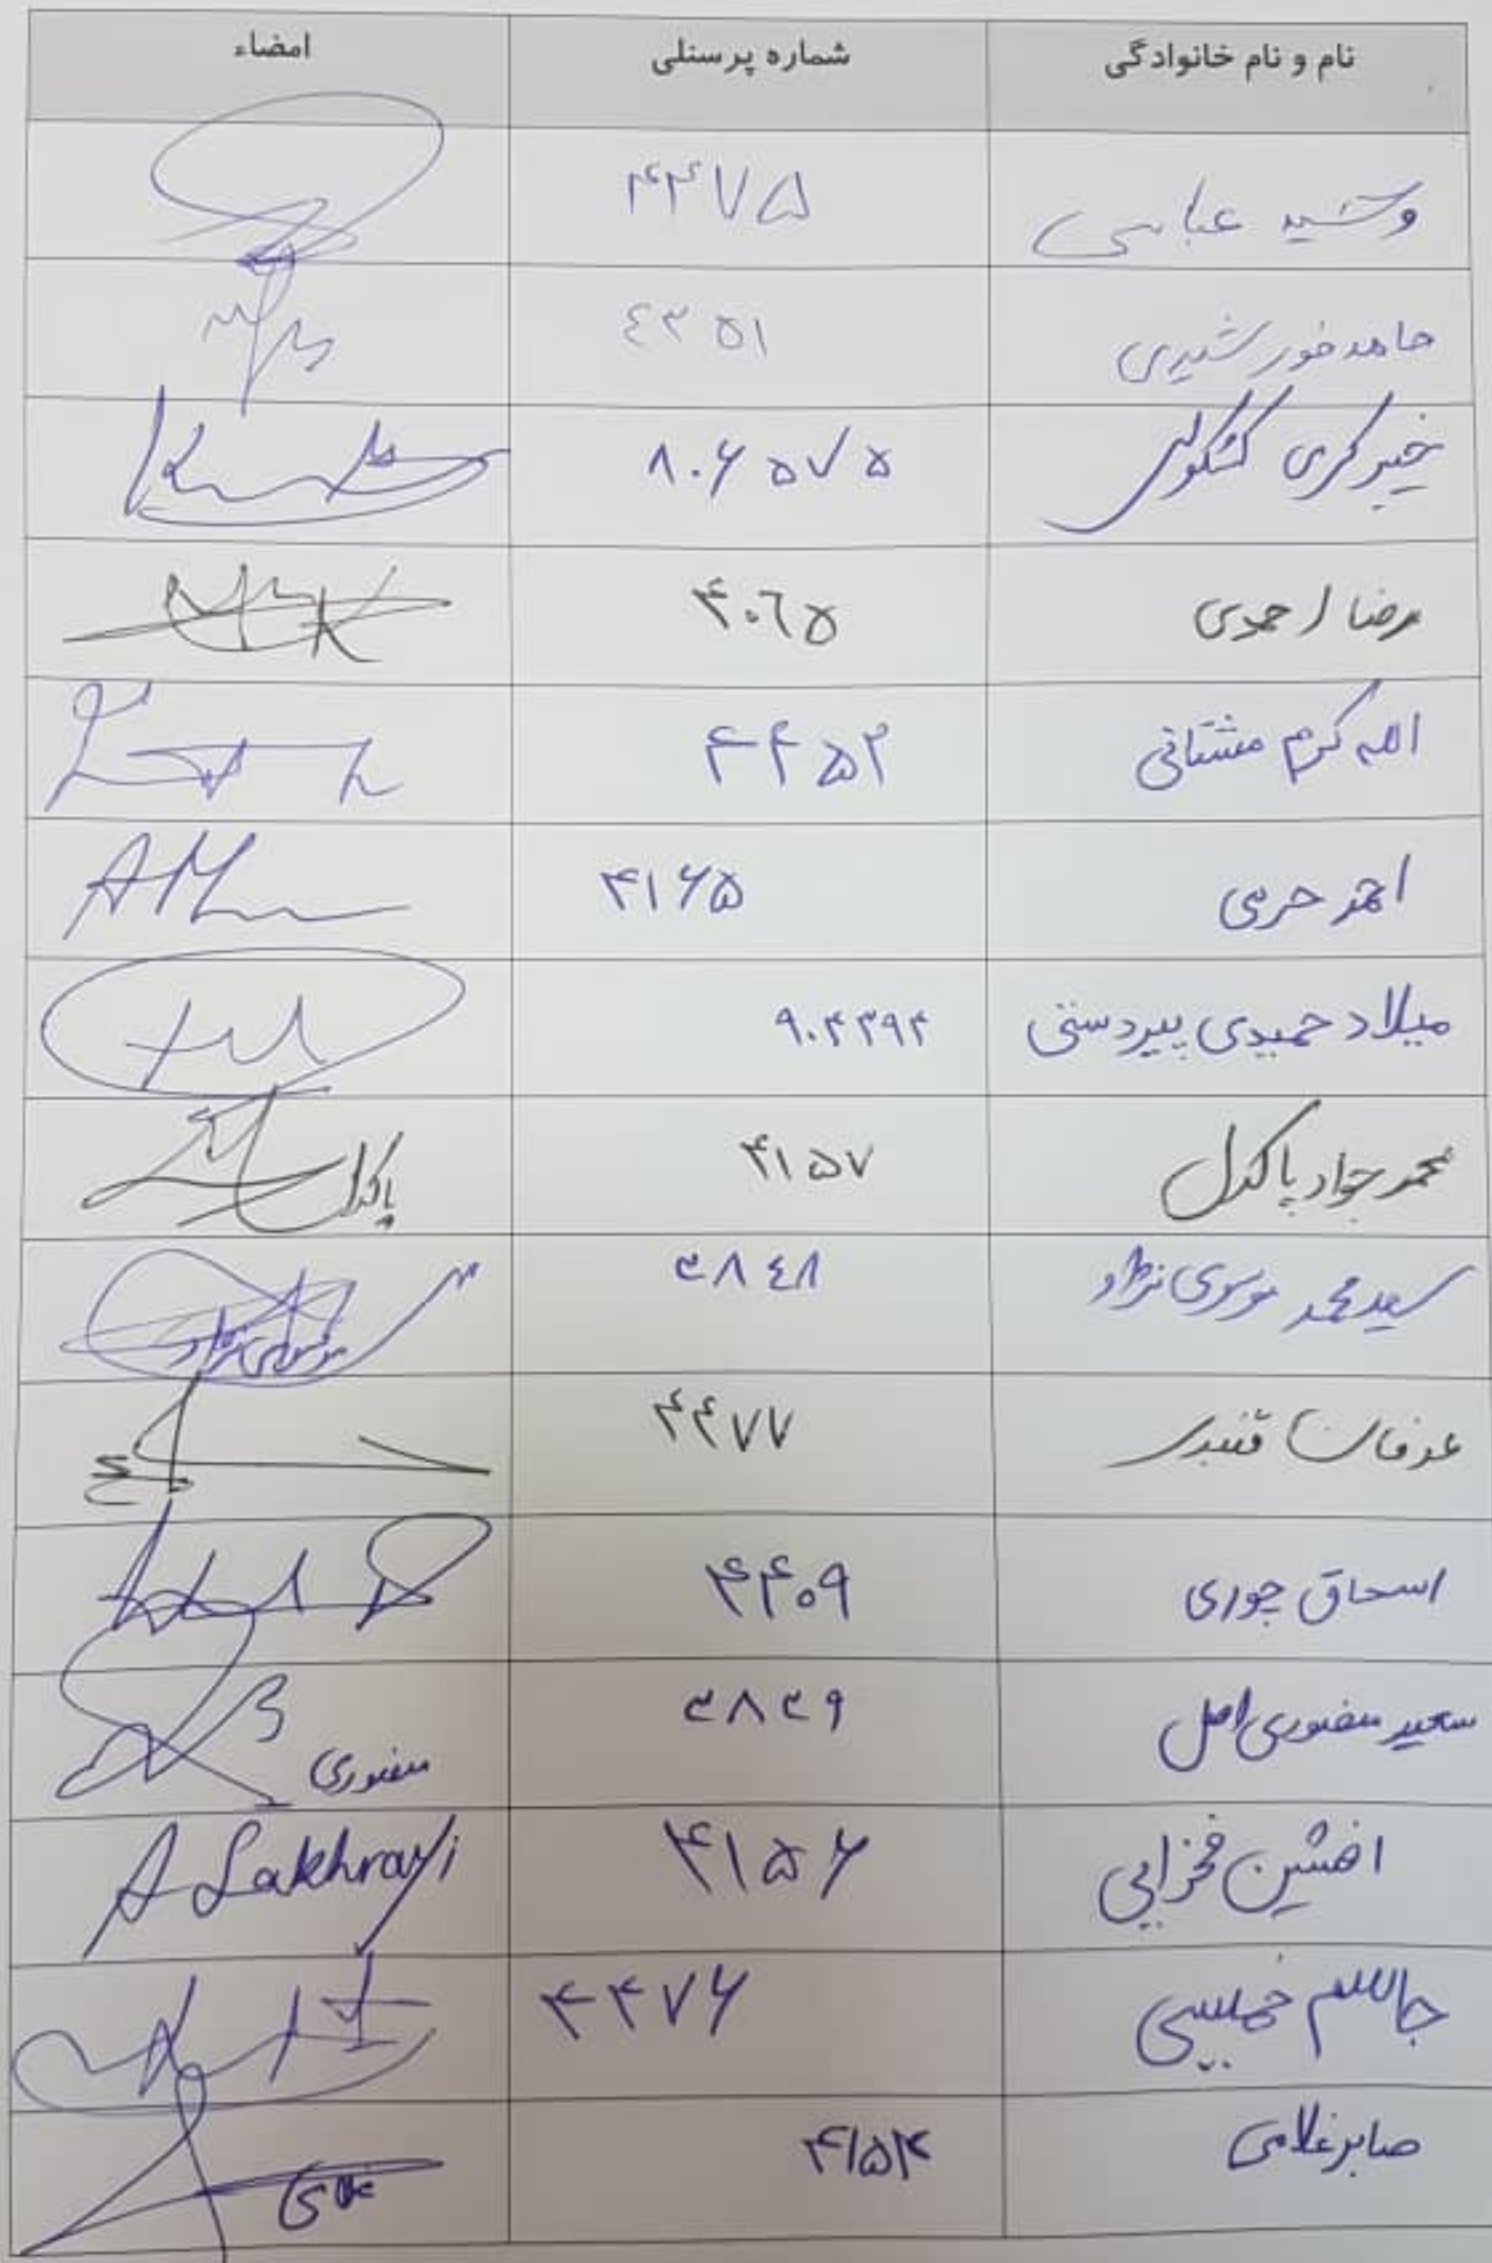 نام و نام خانوادگی شماره پرسنلی امضاء
عباسی ۴۴۷۵
حامد خورشیدی ٤٣٥١
کشکولی ۸۰۶۵۷۵
رضا احمدی ۴۰٦۵
اله کرم مشتانی ۴۴۵۳
احمد حرمی ۴۱۶۵
میلاد حمیدی بیردستی ۹۰۴۳۹۴
محمد جواد پاکدل ۴۱۵۷ پاکدل
سید محمد موسوی نژاد ۳۸٤۸ موسوی نژاد
عرفان قنبری ۴۴۷۷
اسحاق چوری ۴۴۰۹
سعید صفدری اصل ۳۸۳۹ صفدری
افشین فخرایی ۴۱۵۶ A Fakhrayi
جاسم خمیسی ۴۴۷۶
صابر غلامی ۴۱۵۴